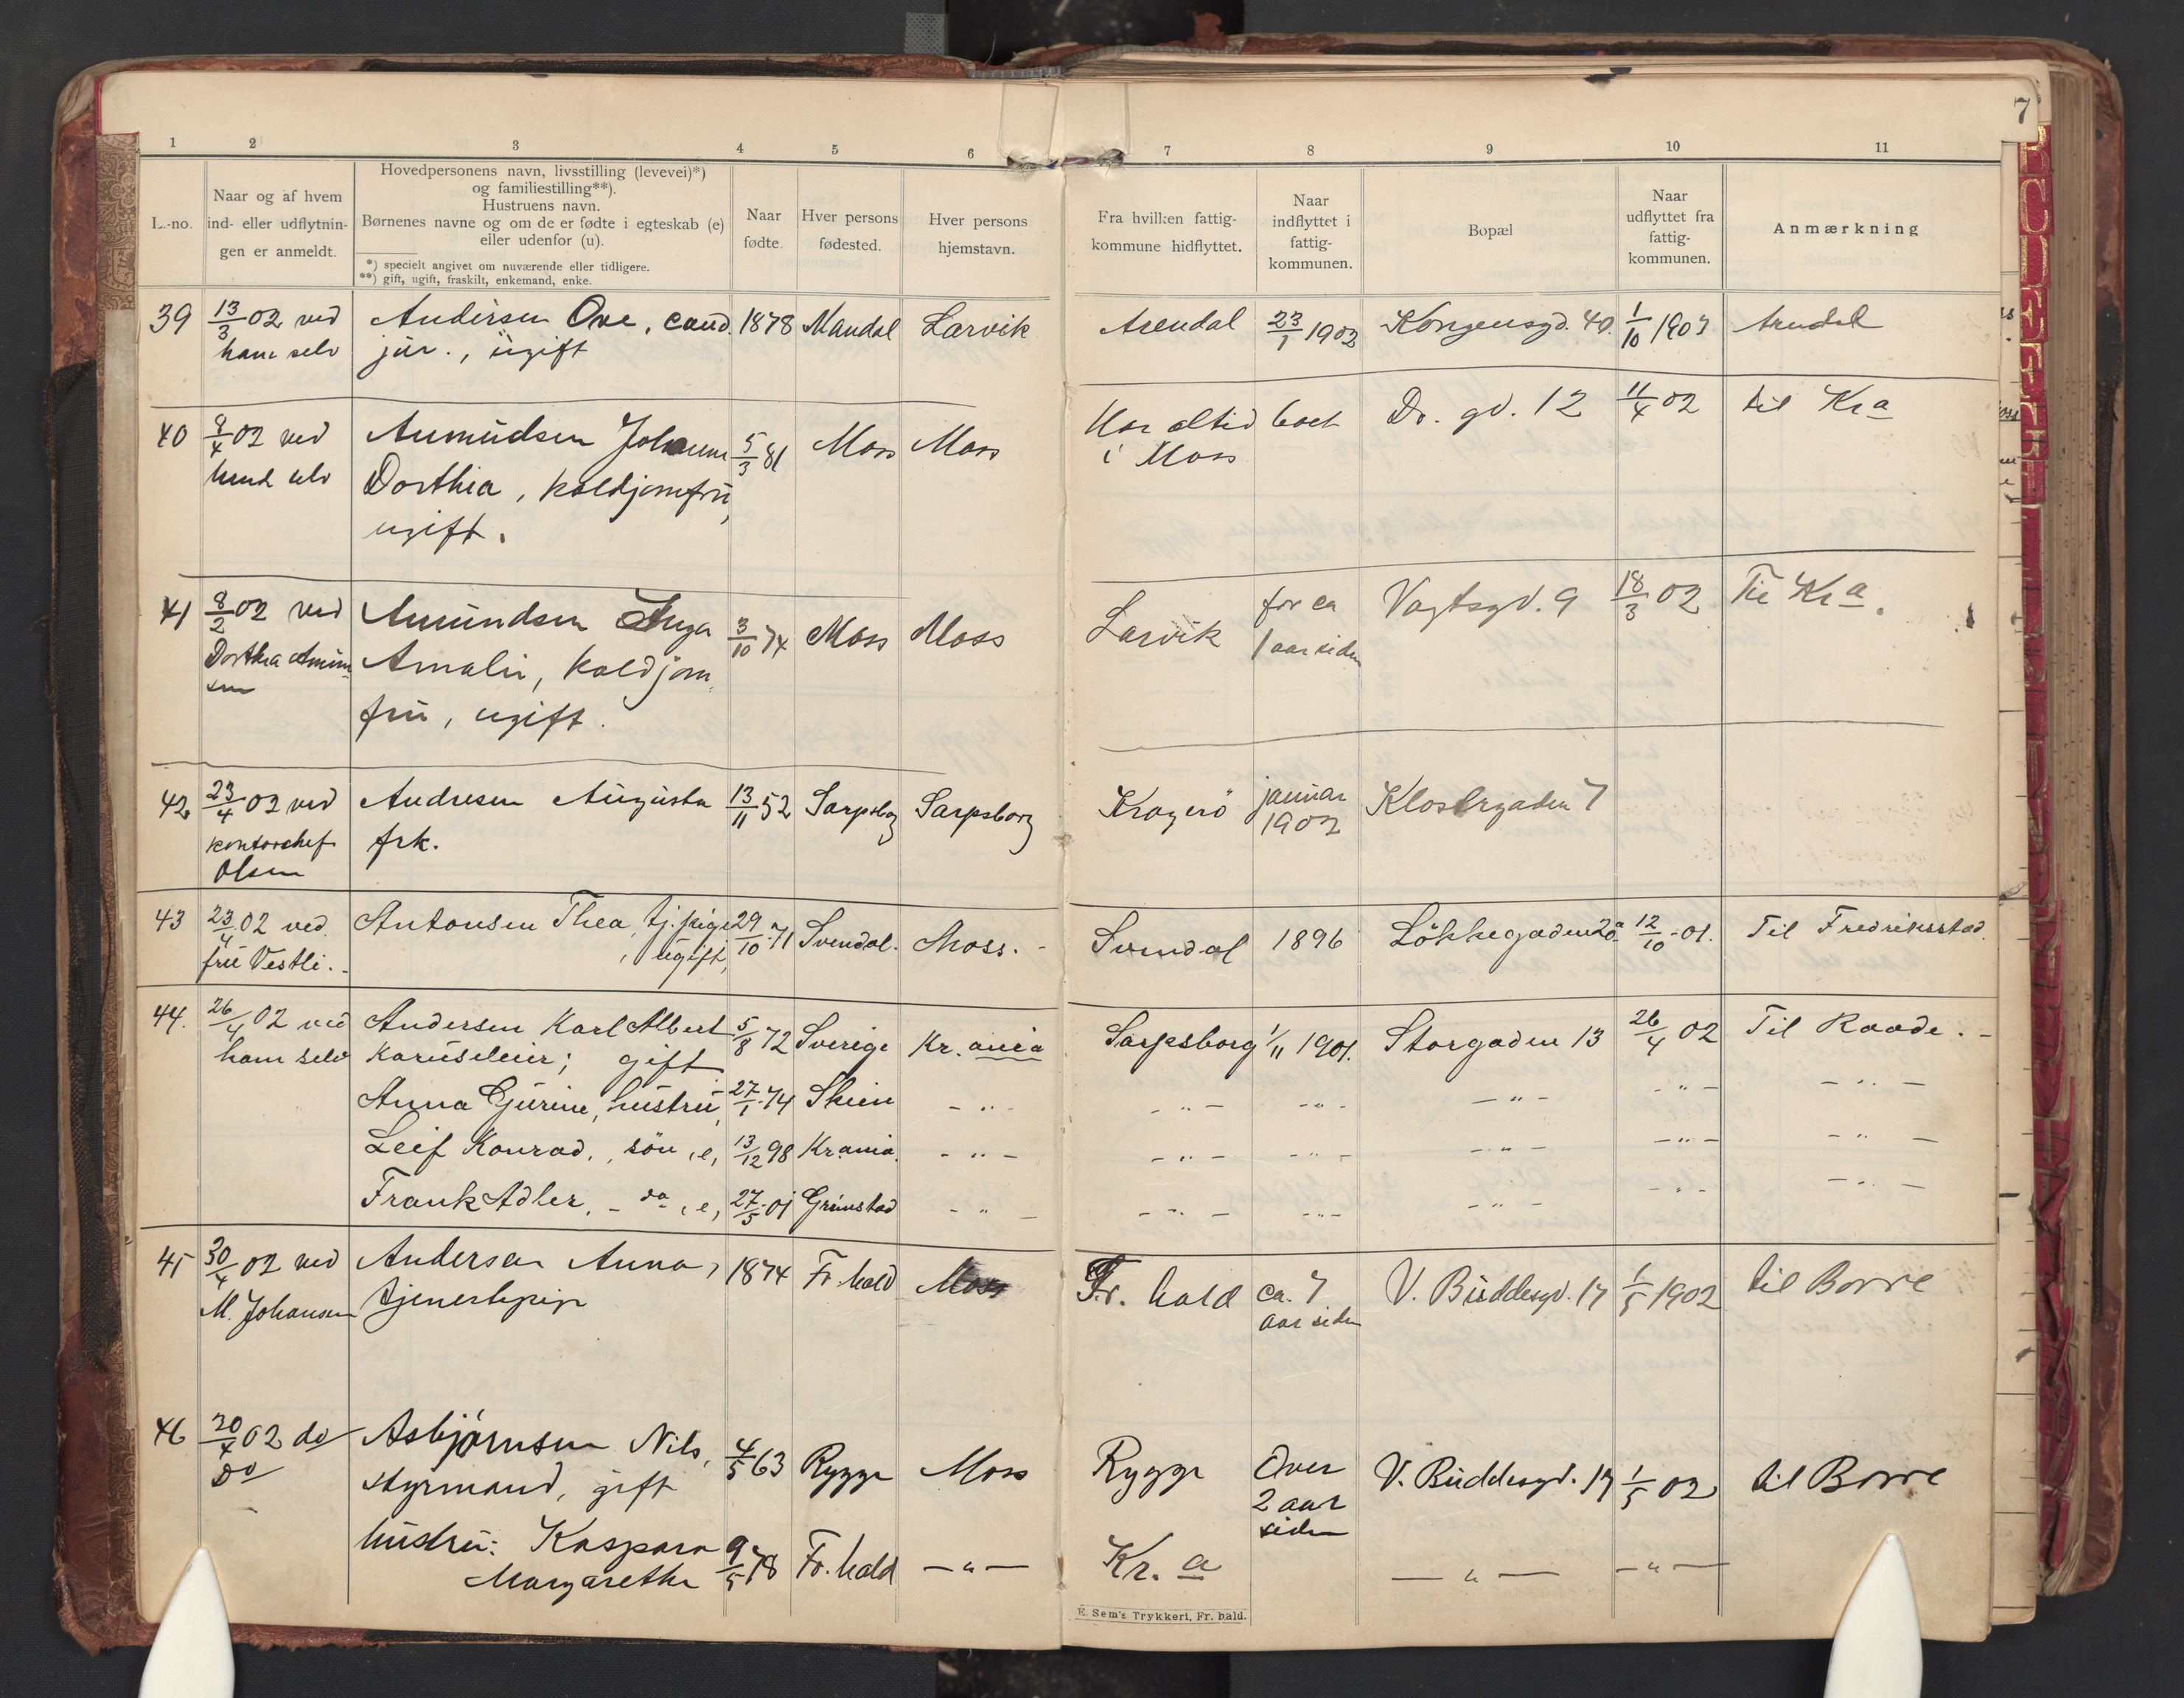 7
1 2 3 4 5 6 7 8 9 10 11
L.-no.
Naar og af hvem
ind- eller udflytnin-
gen er anmeldt.
Hovedpersonens navn, livsstilling (levevei)*)
og familiestilling**).
Hustruens navn.
Børnenes navne og om de er fødte i egteskab (e)
eller udenfor (u).
*) specielt angivet om nuværende eller tidligere.
**) gift, ugift, fraskilt, enkemand, enke.
Naar
fødte.
Hver persons
fødested.
Hver persons
hjemstavn.
Fra hvilken fattig-
kommune hidflyttet.
Naar
indflyttet i
fattig-
kommunen.
Bopæl
Naar
udflyttet fra
fattig-
kommunen.
Anmærkning
39 13/3 02 ved Andersen Ove, cand. 1878 Mandal Larvik Arendal 23/1 1902 Kongensgd. 40. 1/10 1903 Arendal
ham selv jur., ugift
40 8/4 02 ved Amundsen Johanne 5/3 81 Moss Moss Har altid boet Dr. gd. 12 11/4 02 til Kra
hende selv Dorthea, koldjomfru, i Moss
ugift.
41 8/2 02 ved Amundsen Inga 3/10 74 Moss Moss Larvik for ca Vogtsgd. 9 18/3 02 Til Kra.
Dorthea Amund Amalie, koldjom 1 aar siden
sen fru, ugift.
42 23/4 02 ved Andresen Augusta 13/11 52 Sarpsborg Sarpsborg Kragerö januar Klostergaden 7
kontorchef frk. 1902
Olsen
43 23/4 02 ved Antonsen Thea, tj.pige 29/10 71 Svendal. Moss. Svendal 1896 Lökkegaden 2a. 12/10-01. Til Fredriksstad.
fru Vestli. , ugift,
44. 26/4 02 ved Andersen Karl Albert 5/8 72 Sverige Kr.ania Sarpsborg 1/11 1901. Storgaden 13 26/4 02 Til Raade.-
ham selv Karuseleier; gift
Anna Gurine, hustru, 27/1 74 Skien - " - - " - - " - - " - - " - - " -
Leif Konrad, sön, e, 13/12 98 Kr.ania. - " - - " - - " - - " - - " - - " -
Frank Adler, - do, e, 27/5 01 Grimstad - " - - " - - " - - " - - " - - " -
45 30/4 02 ved Andersen Anna, 1874 Fr.hald Moss Fr. hald ca. 7 V. Buddesgd. 17 1/5 1902 til Borre
M. Johansen tjenestepige aar siden
46 30/4 02 do Asbjörnsen Nils, 4/5 63 Rygge Moss Rygge Over V. Buddesgd. 17 1/5 02 til Borre
Do styrmand, gift 2 aar
siden
hustru: Kaspara 9/5 78 Fr.hald - " - Kr. a - " - - " -
Margarethe
E. Sem's Trykkeri, Fr. hald.